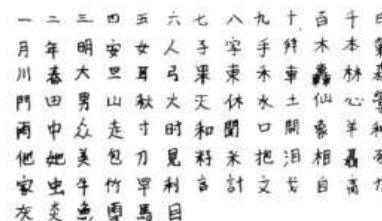 一 二 三 四 五 六 七 八 九 十 百 千
月 年 明 安 女 人 子 字 手 絆 木 本
川 春 大 旦 耳 弓 果 東 禾 車 轟 林 森
門 田 男 山 秋 火 灭 休 水 土 仙 心
雨 中 众 走 寸 时 和 聞 口 間 象 羊
他 她 美 包 刀 見 料 米 抱 泪 相 聶
家 虫 牛 竹 早 利 言 計 文 戈 自 高
灰 炎 魚 雪 馬 目